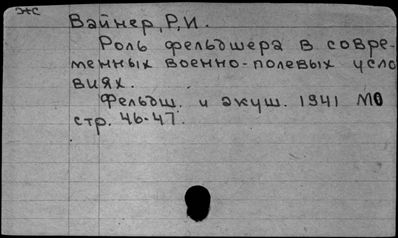 жс
Вайнер, Р, И.
Роль фельдшера в совре-
менных военно-полевых усло
виях.
Фельдш. и акуш. 1941 №0
стр. 46-47.